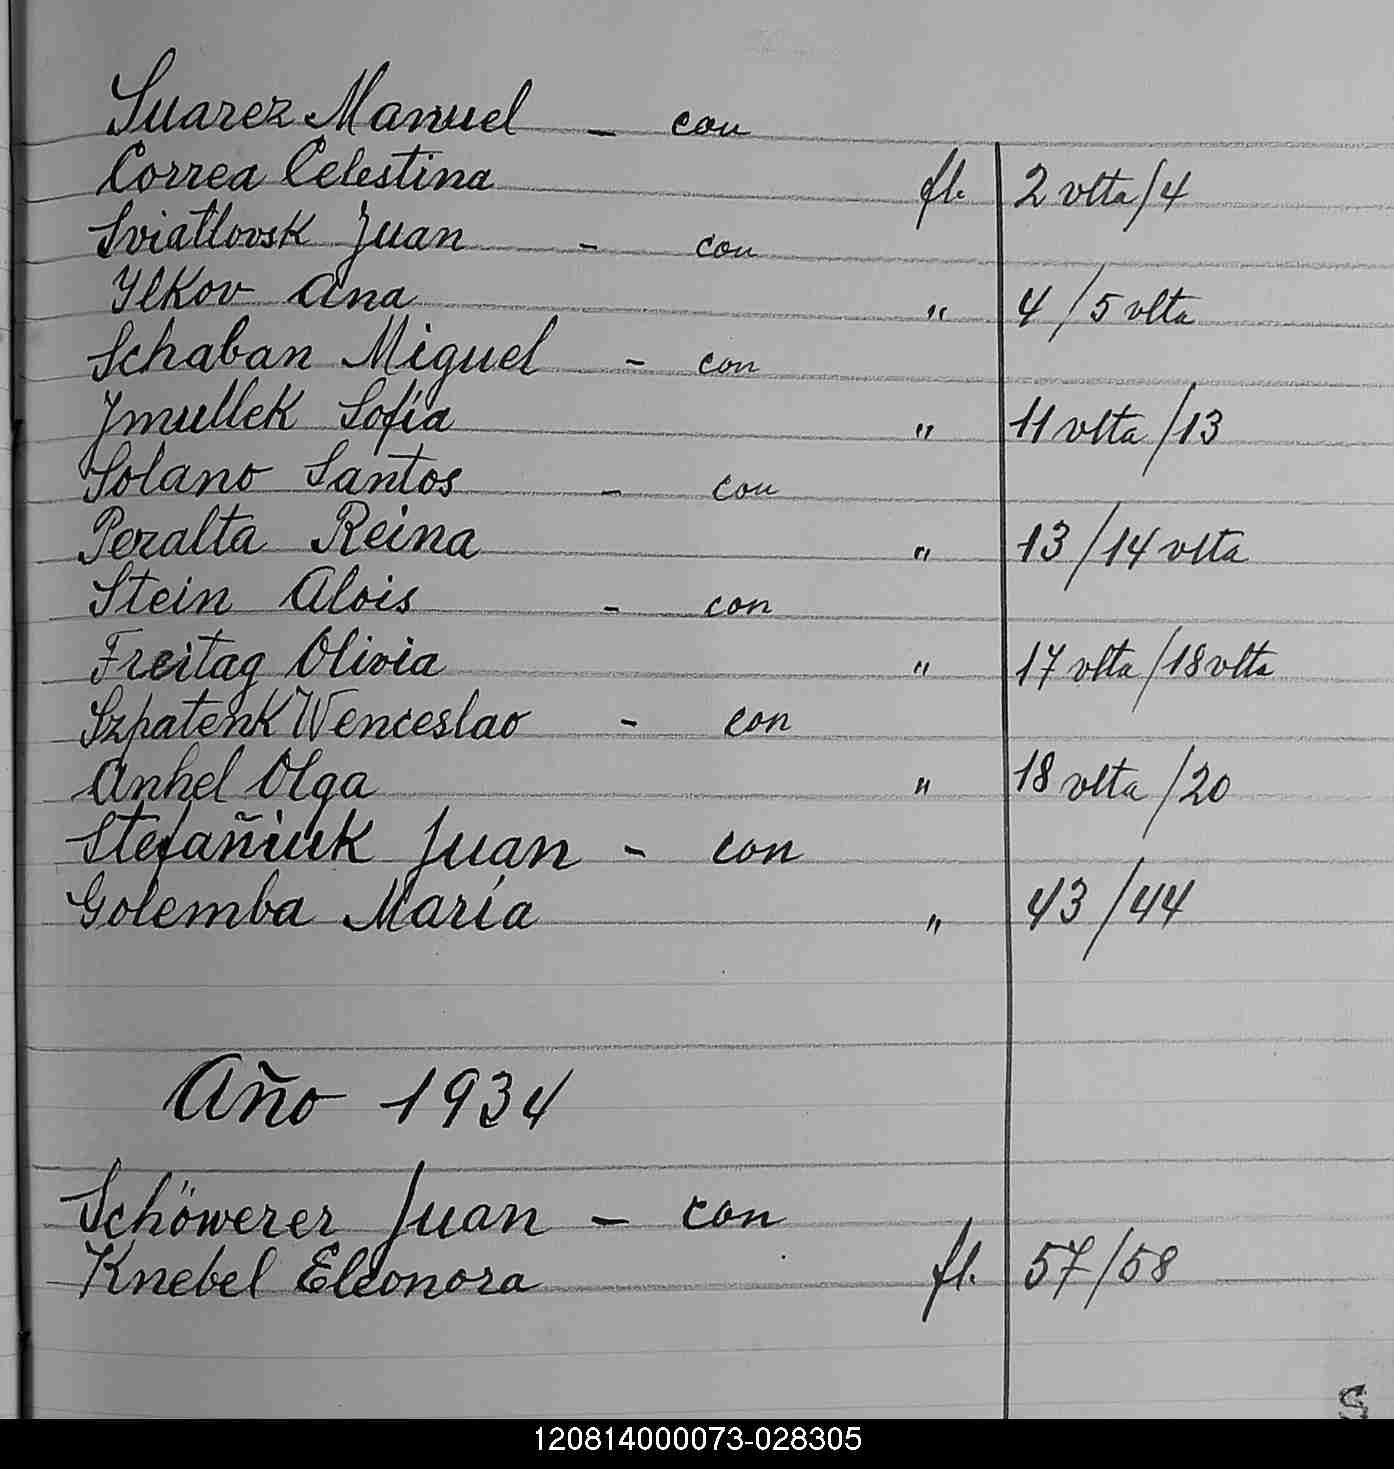 Suarez Manuel - con
Correa Celestina fl. 2 vlta/4
Sviatlovsk Juan - con
Ylkov Ana " 4/5 vlta
Schaban Miguel - con
Jmullek Sofía " 11 vlta/13
Solano Santos - con
Peralta Reina " 13/14 vlta
Stein Alois - con
Freitag Olivia " 17 vlta/18 vlta
Szpatenk Wenceslao - con
Anhel Olga " 18 vlta/20
Stefañiuk Juan - con
Golemba María " 43/44
Año 1934
Schöwerer Juan - con
Knebel Eleonora fl. 57/58
S
120814000073-028305